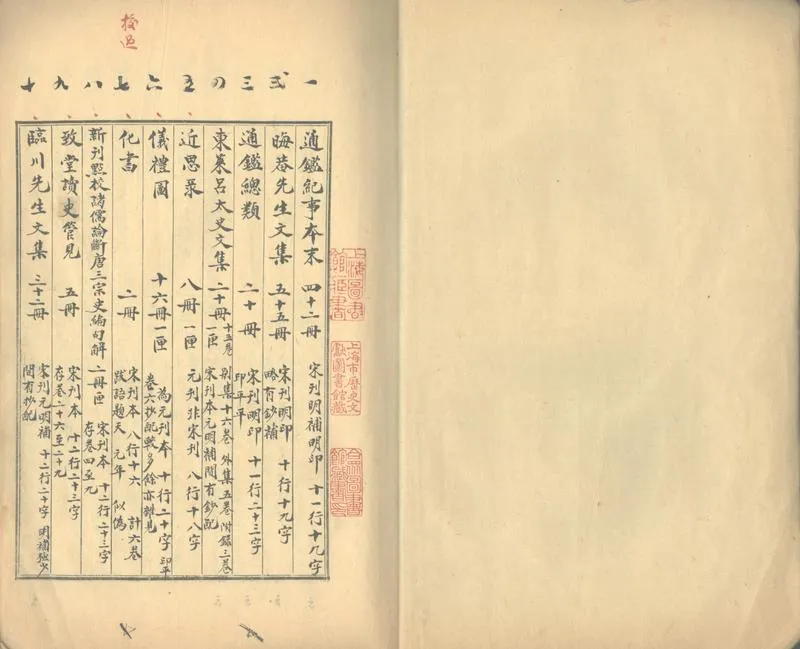 校過
一
通鑑紀事本末 四十二冊 宋刊明補明印 十一行十九字
弍
晦菴先生文集 五十五冊 宋刊明印 十行十九字
略有鈔補
三
通鑑總類 二十冊 宋刊明印 十一行二十三字
印平平
四
東萊呂太史文集 二十冊一匣 十五卷 別集十六卷 外集五卷 附錄三卷
宋刊本元明補間有鈔配
五
近思录 八冊一匣 元刊非宋刊 八行十八字
六
儀禮圖 十六冊一匣 為元刊本 十行二十字 印平
卷六抄配數多餘亦雜見
七
化書 二冊 宋刊本 八行十六 計六卷
跋語題天 元年 似偽
八
新刊點校諸儒論斷唐三宗史編句解 二冊一匣 宋刊本 十二行二十三字
存卷四至九
九
致堂讀史管見 五冊 宋刊本 十二行二十三字
存卷二十六至二十九
十
臨川先生文集 三十二冊 宋刊元明補 十二行二十字 明補極少
間有抄配
上海圖書館藏書
上海市歷史文獻圖書館藏
合眾圖書館藏書印